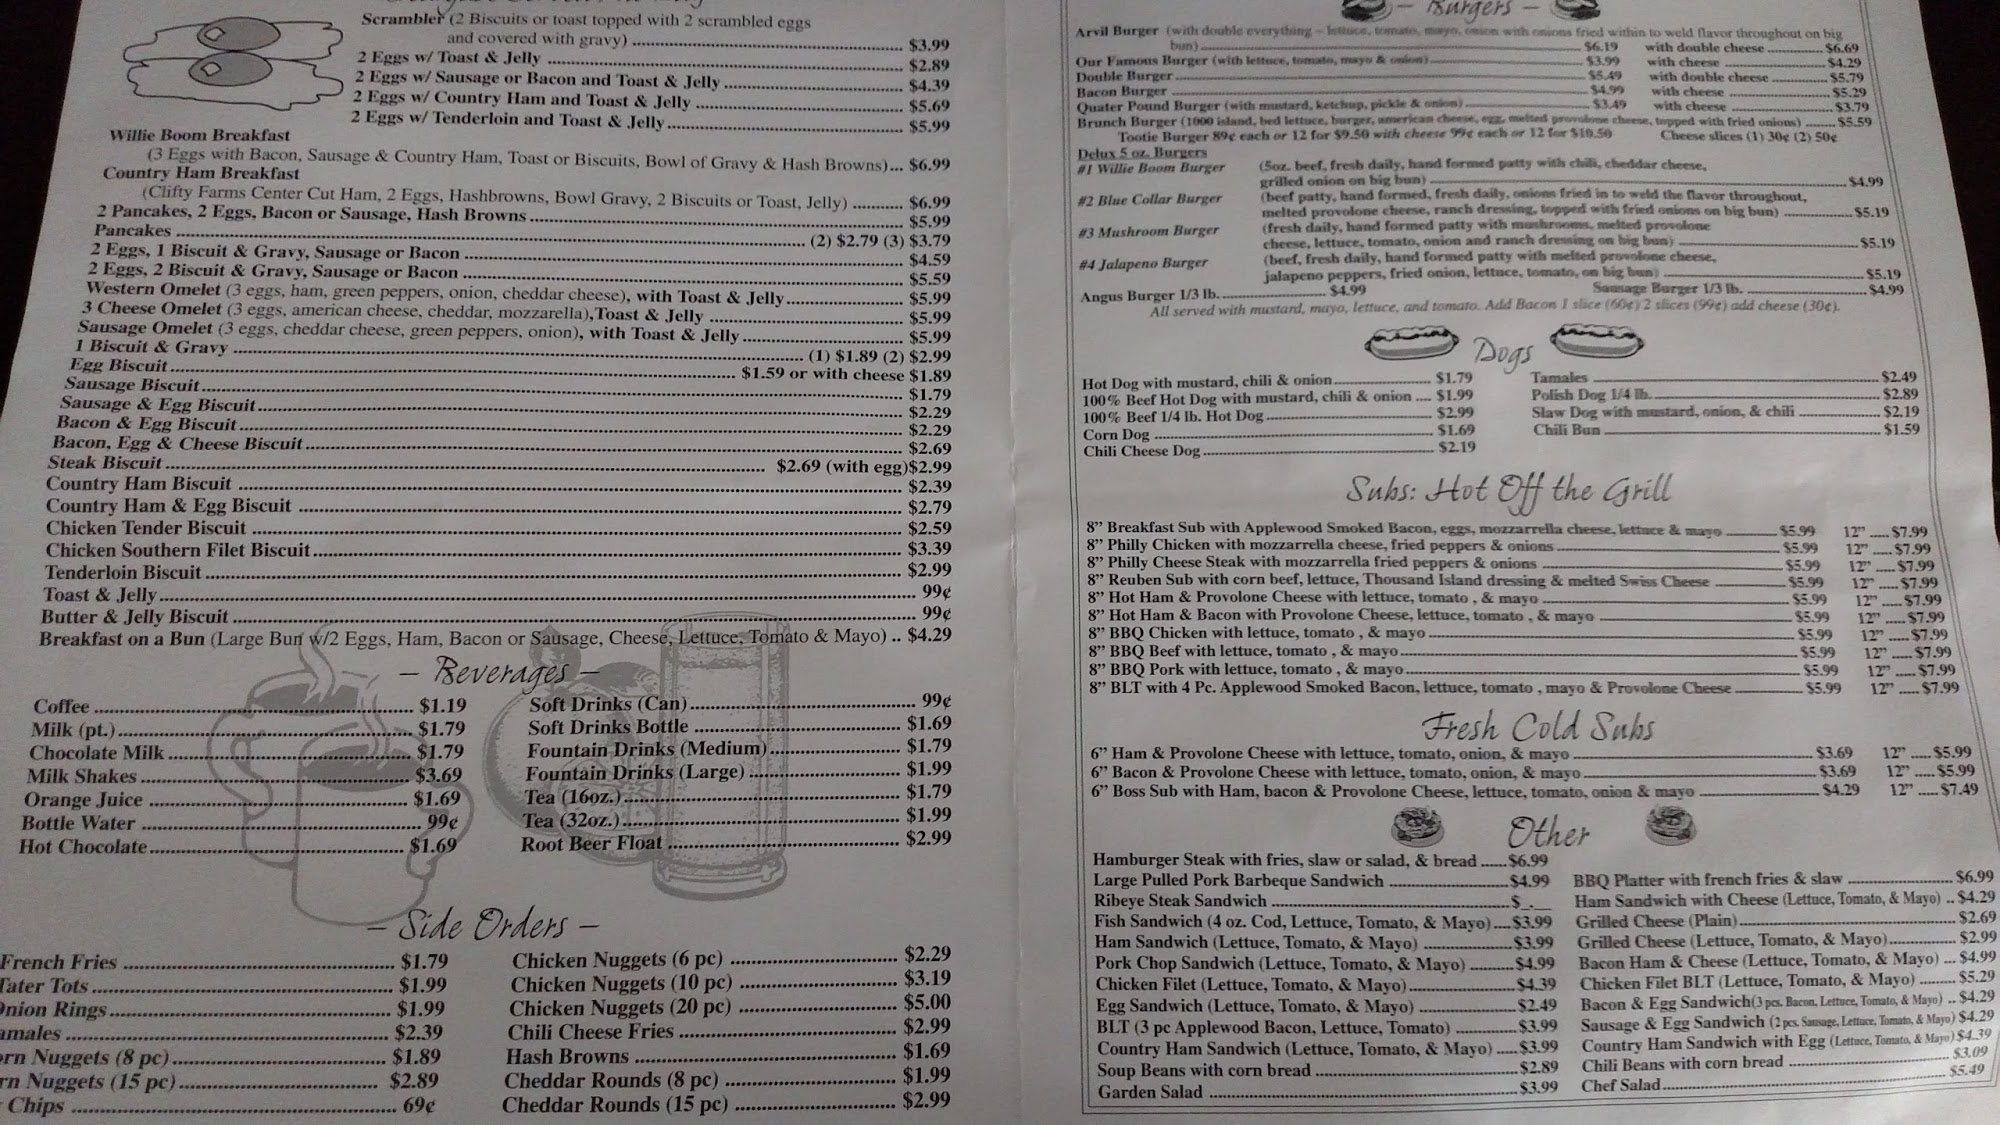 Scrambler (2 Biscuits or toast topped with 2 scrambled eggs
and covered with gravy) $3.99
2 Eggs w/ Toast & Jelly $2.89
2 Eggs w/ Sausage or Bacon and Toast & Jelly $4.39
2 Eggs w/ Country Ham and Toast & Jelly $5.69
2 Eggs w/ Tenderloin and Toast & Jelly $5.99
Willie Boom Breakfast
(3 Eggs with Bacon, Sausage & Country Ham, Toast or Biscuits, Bowl of Gravy & Hash Browns)... $6.99
Country Ham Breakfast
(Clifty Farms Center Cut Ham, 2 Eggs, Hashbrowns, Bowl Gravy, 2 Biscuits or Toast, Jelly) $6.99
2 Pancakes, 2 Eggs, Bacon or Sausage, Hash Browns $5.99
Pancakes (2) $2.79 (3) $3.79
2 Eggs, 1 Biscuit & Gravy, Sausage or Bacon $4.59
2 Eggs, 2 Biscuit & Gravy, Sausage or Bacon $5.59
Western Omelet (3 eggs, ham, green peppers, onion, cheddar cheese), with Toast & Jelly $5.99
3 Cheese Omelet (3 eggs, american cheese, cheddar, mozzarella),Toast & Jelly $5.99
Sausage Omelet (3 eggs, cheddar cheese, green peppers, onion), with Toast & Jelly $5.99
1 Biscuit & Gravy (1) $1.89 (2) $2.99
Egg Biscuit $1.59 or with cheese $1.89
Sausage Biscuit $1.79
Sausage & Egg Biscuit $2.29
Bacon & Egg Biscuit $2.29
Bacon, Egg & Cheese Biscuit $2.69
Steak Biscuit $2.69 (with egg)$2.99
Country Ham Biscuit $2.39
Country Ham & Egg Biscuit $2.79
Chicken Tender Biscuit $2.59
Chicken Southern Filet Biscuit $3.39
Tenderloin Biscuit $2.99
Toast & Jelly 99¢
Butter & Jelly Biscuit 99¢
Breakfast on a Bun (Large Bun w/2 Eggs, Ham, Bacon or Sausage, Cheese, Lettuce, Tomato & Mayo) .. $4.29
– Beverages –
Coffee $1.19
Milk (pt.) $1.79
Chocolate Milk $1.79
Milk Shakes $3.69
Orange Juice $1.69
Bottle Water 99¢
Hot Chocolate $1.69
Soft Drinks (Can) 99¢
Soft Drinks Bottle $1.69
Fountain Drinks (Medium) $1.79
Fountain Drinks (Large) $1.99
Tea (16oz.) $1.79
Tea (32oz.) $1.99
Root Beer Float $2.99
– Side Orders –
French Fries $1.79
Tater Tots $1.99
Onion Rings $1.99
amales $2.39
orn Nuggets (8 pc) $1.89
rn Nuggets (15 pc) $2.89
Chips 69¢
Chicken Nuggets (6 pc) $2.29
Chicken Nuggets (10 pc) $3.19
Chicken Nuggets (20 pc) $5.00
Chili Cheese Fries $2.99
Hash Browns $1.69
Cheddar Rounds (8 pc) $1.99
Cheddar Rounds (15 pc) $2.99
– Burgers –
Arvil Burger (with double everything – lettuce, tomato, mayo, onion with onions fried within to weld flavor throughout on big
bun) $6.19 with double cheese $6.69
Our Famous Burger (with lettuce, tomato, mayo & onion) $3.99 with cheese $4.29
Double Burger $5.49 with double cheese $5.79
Bacon Burger $4.99 with cheese $5.29
Quater Pound Burger (with mustard, ketchup, pickle & onion) $3.49 with cheese $3.79
Brunch Burger (1000 island, bed lettuce, burger, american cheese, egg, melted provolone cheese, topped with fried onions) $5.59
Tootie Burger 89¢ each or 12 for $9.50 with cheese 99¢ each or 12 for $10.50 Cheese slices (1) 30¢ (2) 50¢
Delux 5 oz. Burgers
#1 Willie Boom Burger (5oz. beef, fresh daily, hand formed patty with chili, cheddar cheese,
grilled onion on big bun) $4.99
#2 Blue Collar Burger (beef patty, hand formed, fresh daily, onions fried in to weld the flavor throughout,
melted provolone cheese, ranch dressing, topped with fried onions on big bun) $5.19
#3 Mushroom Burger (fresh daily, hand formed patty with mushrooms, melted provolone
cheese, lettuce, tomato, onion and ranch dressing on big bun) $5.19
#4 Jalapeno Burger (beef, fresh daily, hand formed patty with melted provolone cheese,
jalapeno peppers, fried onion, lettuce, tomato, on big bun) $5.19
Angus Burger 1/3 lb. $4.99 Sausage Burger 1/3 lb. $4.99
All served with mustard, mayo, lettuce, and tomato. Add Bacon 1 slice (60¢) 2 slices (99¢) add cheese (30¢).
Dogs
Hot Dog with mustard, chili & onion $1.79
100% Beef Hot Dog with mustard, chili & onion $1.99
100% Beef 1/4 lb. Hot Dog $2.99
Corn Dog $1.69
Chili Cheese Dog $2.19
Tamales $2.49
Polish Dog 1/4 lb. $2.89
Slaw Dog with mustard, onion, & chili $2.19
Chili Bun $1.59
Subs: Hot Off the Grill
8” Breakfast Sub with Applewood Smoked Bacon, eggs, mozzarrella cheese, lettuce & mayo $5.99 12” $7.99
8” Philly Chicken with mozzarrella cheese, fried peppers & onions $5.99 12” $7.99
8” Philly Cheese Steak with mozzarrella fried peppers & onions $5.99 12” $7.99
8” Reuben Sub with corn beef, lettuce, Thousand Island dressing & melted Swiss Cheese $5.99 12” $7.99
8” Hot Ham & Provolone Cheese with lettuce, tomato , & mayo $5.99 12” $7.99
8” Hot Ham & Bacon with Provolone Cheese, lettuce, tomato , & mayo $5.99 12” $7.99
8” BBQ Chicken with lettuce, tomato , & mayo $5.99 12” $7.99
8” BBQ Beef with lettuce, tomato , & mayo $5.99 12” $7.99
8” BBQ Pork with lettuce, tomato , & mayo $5.99 12” $7.99
8” BLT with 4 Pc. Applewood Smoked Bacon, lettuce, tomato , mayo & Provolone Cheese $5.99 12” $7.99
Fresh Cold Subs
6” Ham & Provolone Cheese with lettuce, tomato, onion, & mayo $3.69 12” $5.99
6” Bacon & Provolone Cheese with lettuce, tomato, onion, & mayo $3.69 12” $5.99
6” Boss Sub with Ham, bacon & Provolone Cheese, lettuce, tomato, onion & mayo $4.29 12” $7.49
Other
Hamburger Steak with fries, slaw or salad, & bread $6.99
Large Pulled Pork Barbeque Sandwich $4.99
Ribeye Steak Sandwich $_._
Fish Sandwich (4 oz. Cod, Lettuce, Tomato, & Mayo) $3.99
Ham Sandwich (Lettuce, Tomato, & Mayo) $3.99
Pork Chop Sandwich (Lettuce, Tomato, & Mayo) $4.99
Chicken Filet (Lettuce, Tomato, & Mayo) $4.39
Egg Sandwich (Lettuce, Tomato, & Mayo) $2.49
BLT (3 pc Applewood Bacon, Lettuce, Tomato) $3.99
Country Ham Sandwich (Lettuce, Tomato, & Mayo) $3.99
Soup Beans with corn bread $2.89
Garden Salad $3.99
BBQ Platter with french fries & slaw $6.99
Ham Sandwich with Cheese (Lettuce, Tomato, & Mayo) .. $4.29
Grilled Cheese (Plain) $2.69
Grilled Cheese (Lettuce, Tomato, & Mayo) $2.99
Bacon Ham & Cheese (Lettuce, Tomato, & Mayo) ... $4.99
Chicken Filet BLT (Lettuce, Tomato, & Mayo) $5.29
Bacon & Egg Sandwich(3 pcs. Bacon, Lettuce, Tomato, & Mayo) .. $4.29
Sausage & Egg Sandwich (2 pcs. Sausage, Lettuce, Tomato, & Mayo) $4.29
Country Ham Sandwich with Egg (Lettuce, Tomato, & Mayo) $4.39
Chili Beans with corn bread $3.09
Chef Salad $5.49